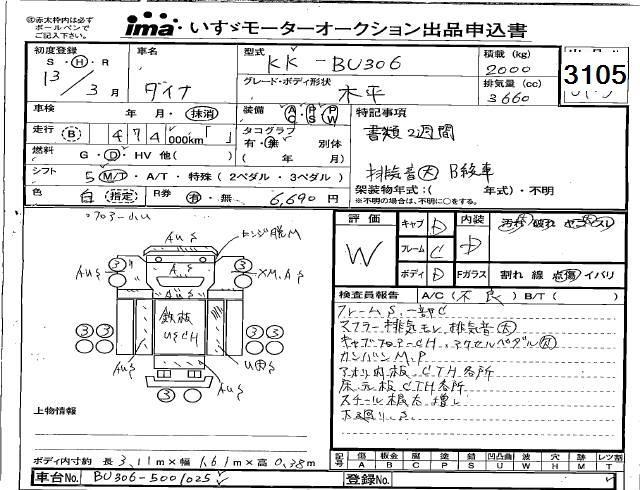 ㊟赤太枠内は必ず
ボールペンで
ご記入下さい
ima いすゞモーターオークション出品申込書
初度登録 車名 型式 積載 (kg)
S・H・R KK-BU306 2000 3105
13/3月 ダイナ グレード・ボディ形状 排気量 (cc)
水平 3660
車検 年 月・抹消 装備 AC PS PW 特記事項
走行 B 474,000km「 」 タコグラフ 書類2週間
有・無 別体
燃料 G・D・HV 他( ) ( 年 月) 排気音大 B級車
シフト 5 M/T・A/T・特殊(2ペダル・3ペダル) 架装物年式:( 年式)・不明
色 白 指定 R券 有・無 6,690円 ※不明の場合は、不明に○をする。
フロアールリ 評価 キャブ D 内装 汚れ 破れ
W フレーム C D
ボディ D Fガラス 割れ 線 点傷 イバリ
AUS ヒンジ脱M
3 3
AUS XM,AS
検査員報告 A/C(不良)B/T( )
フレームS.一部C
鉄板 マフラー排気モレ,排気音大
USCH キャブフロアーCH,アクセルペダル
3 3 3 3 カンバンM.P
AUS アオリ内板CTH各所
床元板CTH各所
AUS スチール根太増し
3
上物情報
記号 傷 板金 腐 塗 錆 凹凸曲 波 穴 跡 レツ割
A B C P S U W H M T
ボディ内寸約 長3.11m×幅1.61m×高0.38m
車台No. BU306-5001025 登録No.